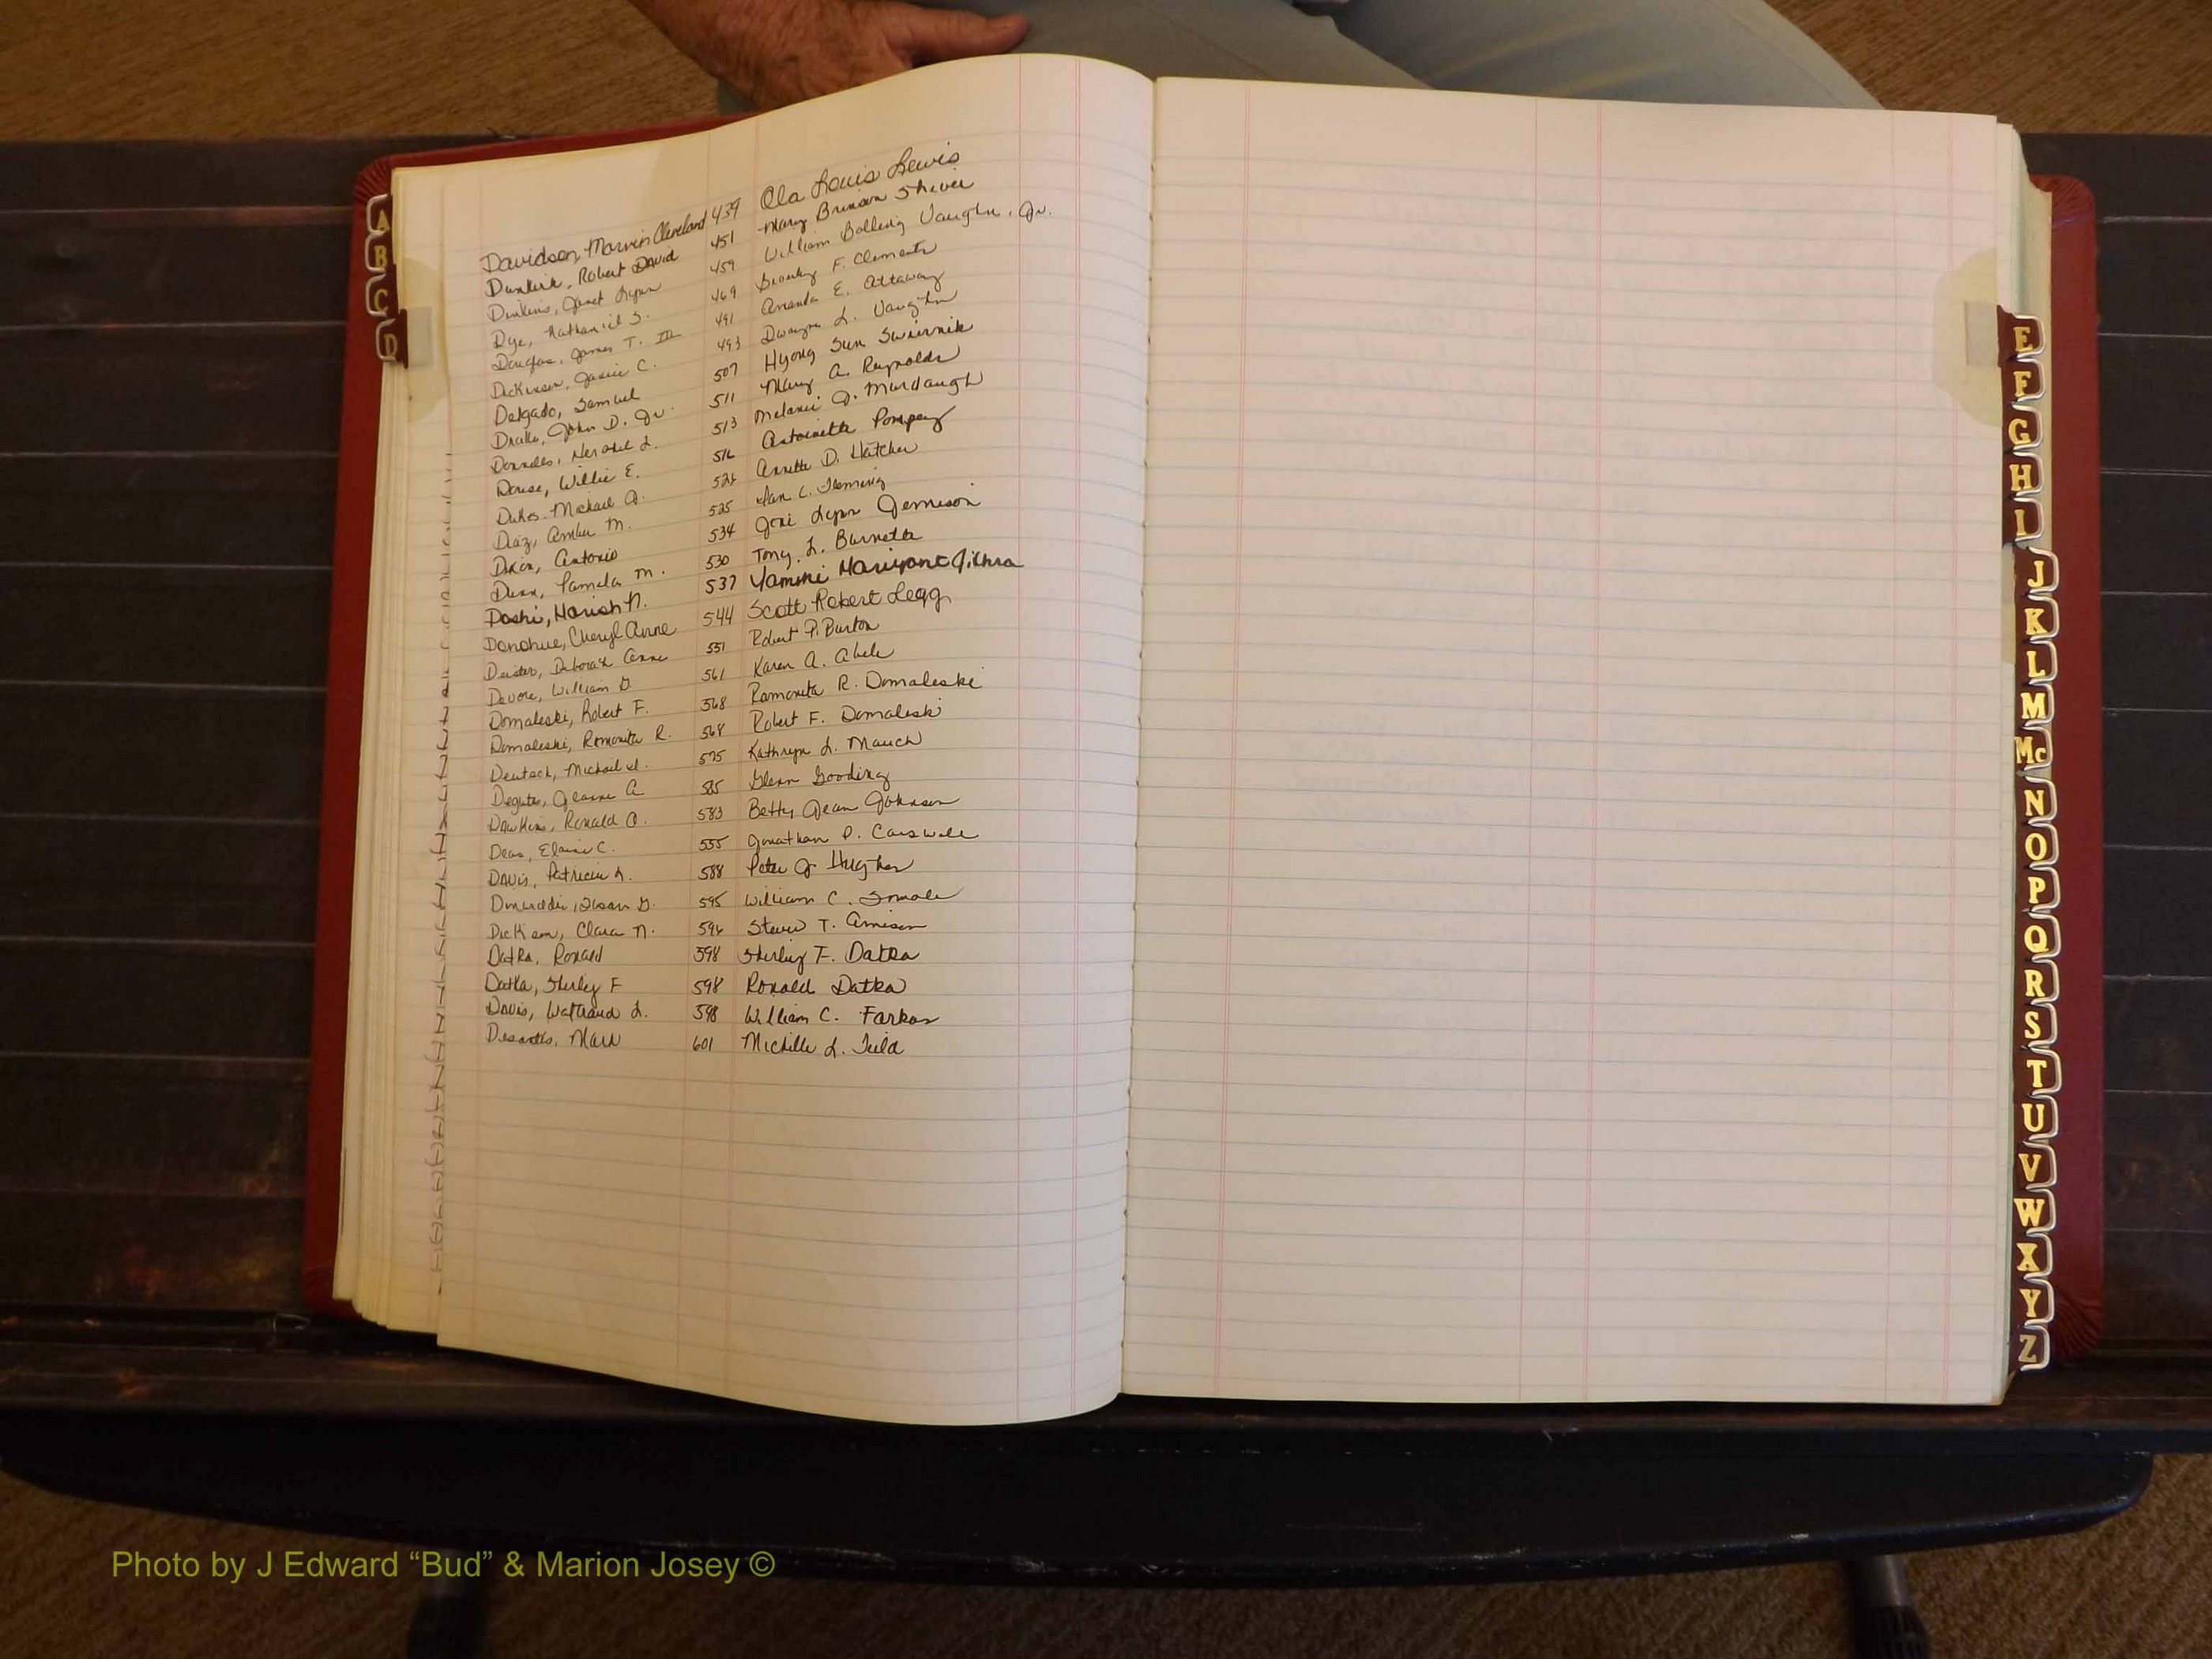 Davidson, Marvin Cleveland 439 Ola Louis Lewis
Dunkirk, Robert David 451 Mary Brinson Shiver
Dinkins, Janet Lynn 459 William Bolling Vaughn, Jr.
Dye, Nathaniel S. 469 F. Clements
Douglas, James T. III 491 Amanda E. Attaway
Dickinson, Janice C. 493 Dwayne L. Vaughn
Delgado, Samuel 507 Hyong Sun Swiernik
Drake, John D. Jr. 511 Mary A. Reynolds
L. 513 Melanie J. Murdaugh
Willie E. 516 Antoinette Pompey
Dukes, Michael A. 521 Annette D. Hatcher
Diaz, Amber M. 525 Ian C. Fleming
Dixon, Antonio 534 Joni Lynn Jernison
Dunn, Pamela M. 530 Tony L. Burnette
Doshi, Harish N. 537 Yamini
Donohue, Cheryl Anne 544 Scott Robert Legg
Deister, Deborah Anne 551 Robert P. Burton
Devore, William G. 561 Karen A. Abele
Domaleski, Robert F. 568 Ramonita R. Domaleski
Domaleski, Ramonita R. 568 Robert F. Domaleski
Deutsch, Michael 575 Kathryn L. Mauch
Jeanne A 585 Glenn Gooding
Dawkins, Ronald O. 583 Betty Jean Johnson
Deas, Elaine C. 555 Jonathan P. Carswell
Davis, Patricia L. 588 Peter J Hughes
Susan G. 595 William C.
Dickson, Clara N. 596 Steven T. Amison
Datka, Ronald 598 Shirley F. Datka
Datka, Shirley F 598 Ronald Datka
Davis, Waltraud L. 598 William C. Farkas
Desantis, Mark 601 Michelle L.
A
B
C
D
E
F
G
H
I
J
K
L
M
Mc
N
O
P
Q
R
S
T
U
V
W
X
Y
Z
Photo by J Edward “Bud” & Marion Josey ©